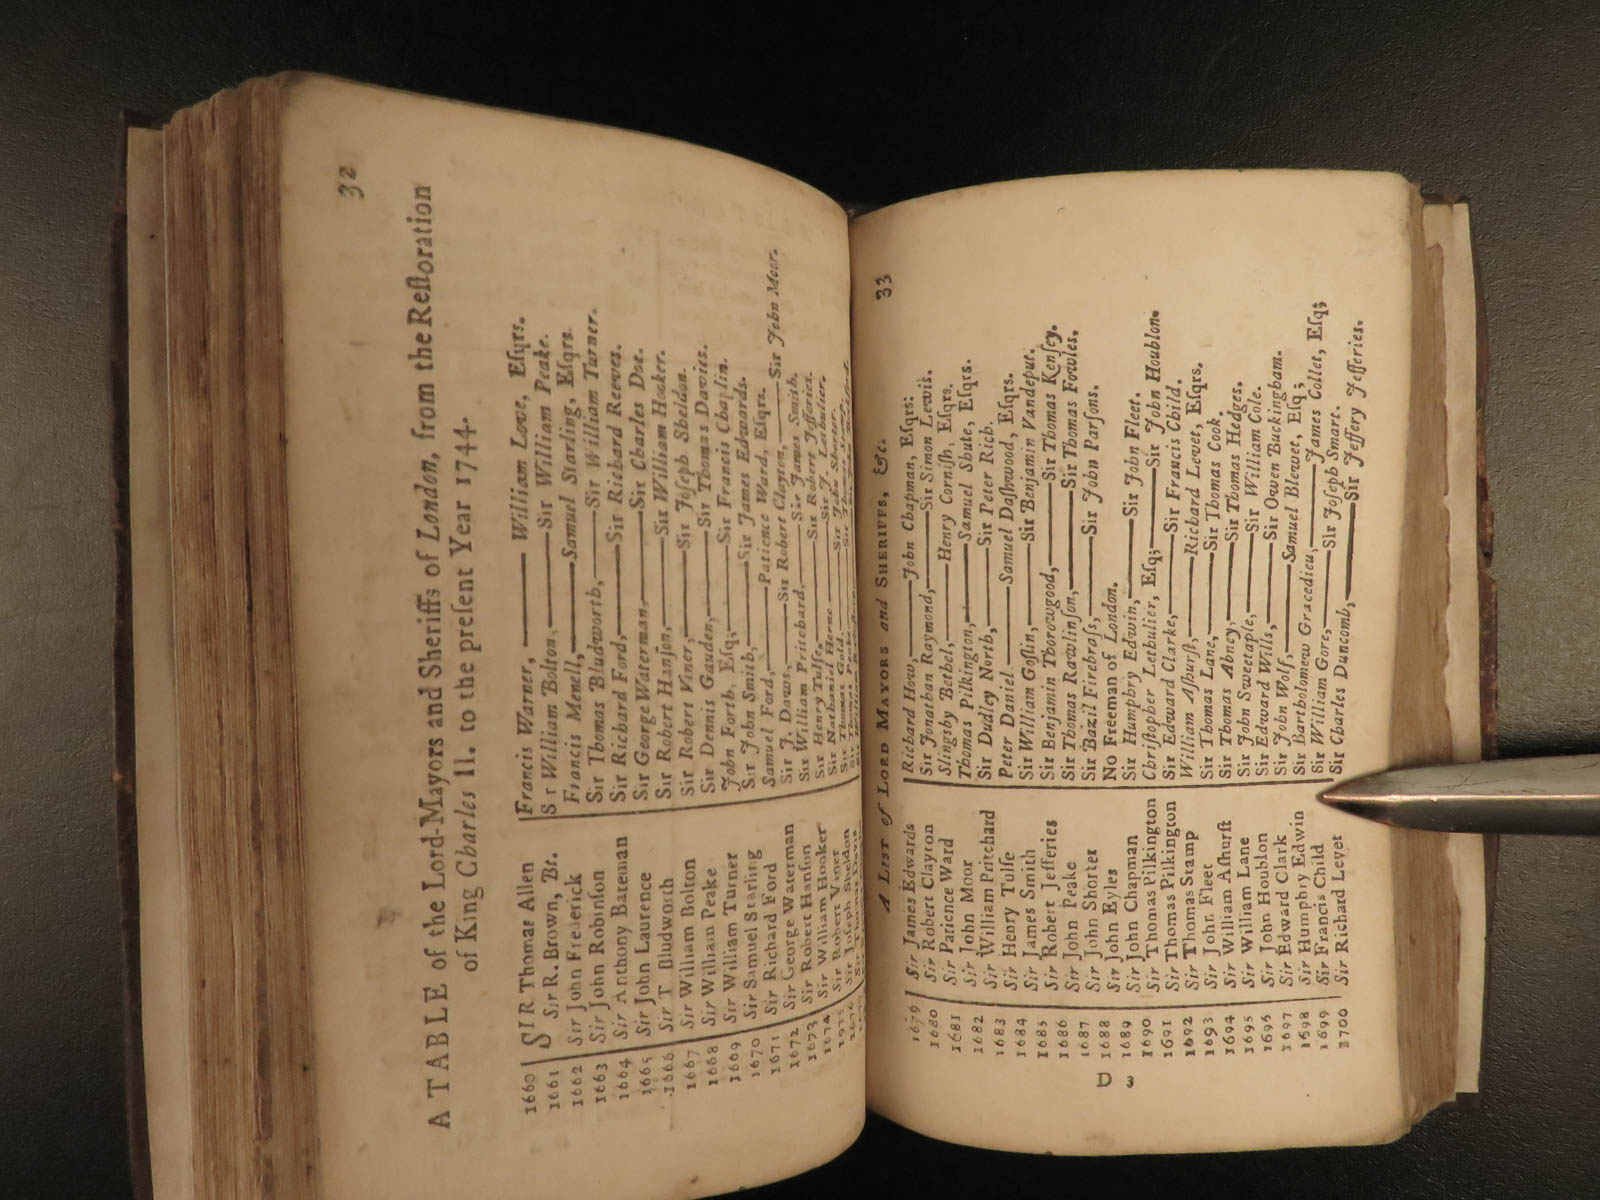 32
A TABLE of the Lord-Mayors and Sheriffs of London, from the Reſtoration
of King Charles II. to the preſent Year 1744.
1660 SIR Thomas Allen Francis Warner, — William Love, Eſqrs.
1661 Sir R. Brown, Bt. Sir William Bolton, — Sir William Peake.
1662 Sir John Frederick Francis Menell, — Samuel Starling, Eſqrs.
1663 Sir John Robinſon Sir Thomas Bludworth, — Sir William Turner.
1664 Sir Anthony Bateman Sir Richard Ford, — Sir Richard Reeves.
1665 Sir John Laurence Sir George Waterman, — Sir Charles Doe.
1666 Sir T Bludworth Sir Robert Hanſon, — Sir William Hooker.
1667 Sir William Bolton Sir Robert Viner, — Sir Joſeph Sheldon.
1668 Sir William Peake Sir Dennis Gauden, — Sir Thomas Davies.
1669 Sir William Turner John Forth, Eſq; — Sir Francis Chaplin.
1670 Sir Samuel Starling Sir John Smith, — Sir James Edwards.
1671 Sir Richard Ford Samuel Ford, — Patience Ward, Eſqrs.
1672 Sir George Waterman Sir J. Daws, — Sir Robert Clayton, — Sir John Moor.
1673 Sir Robert Hanſon Sir William Pritchard, — Sir James Smith.
1674 Sir William Hooker Sir Henry Tulſe, — Sir Robert Jefferies.
1675 Sir Robert Viner Sir Nathaniel Herne — Sir John Shorter.
1676 Sir Joſeph Sheldon Sir Thomas Gold,
Sir Thomas Davis
33
A LIST of LORD MAYORS and SHERIFFS, &c.
1679 Sir James Edwards Richard How, — John Chapman, Eſqrs:
1680 Sir Robert Clayton Sir Jonathan Raymond, — Sir Simon Lewis.
1681 Sir Patience Ward Slingsby Bethel, — Henry Corniſh, Eſqrs.
1682 Sir John Moor Thomas Pilkington, — Samuel Shute, Eſqrs.
1683 Sir William Pritchard Sir Dudley North, — Sir Peter Rich.
1684 Sir Henry Tulſe Peter Daniel — Samuel Daſhwood, Eſqrs.
1685 Sir James Smith Sir William Goſlin, — Sir Benjamin Vandeput.
1686 Sir Robert Jefferies Sir Benjamin Thorowgood, — Sir Thomas Kenſey.
1687 Sir John Peake Sir Thomas Rawlinſon, — Sir Thomas Fowles.
1688 Sir John Shorter Sir Bazil Firebraſs, — Sir John Parſons.
1689 Sir John Eyles No Freeman of London.
1690 Sir John Chapman Sir Humphry Edwin, — Sir John Fleet.
1692 Sir Thomas Pilkington Chriſtopher Lethulier, Eſq; — Sir John Houblon.
1693 Sir Thomas Pilkington Sir Edward Clarke, — Sir Francis Child.
1694 Sir Thomas Stamp William Aſhurſt, — Richard Levet, Eſqrs.
1695 Sir John Fleet Sir Thomas Lane, — Sir Thomas Cook.
1696 Sir William Aſhurſt Sir Thomas Abney, — Sir Thomas Hedges.
1697 Sir William Lane Sir John Sweetaple, — Sir William Cole.
1698 Sir John Houblon Sir Edward Wills, — Sir Owen Buckingham.
1699 Sir Edward Clark Sir John Wolf, — Samuel Blewet, Eſq;
1700 Sir Humphry Edwin Sir Bartholomew Gracedieu, — James Collet, Eſq;
Sir Francis Child Sir William Gore, — Sir Joſeph Smart.
Sir Richard Levet Sir Charles Duncomb, — Sir Jeffery Jefferies.
D 3